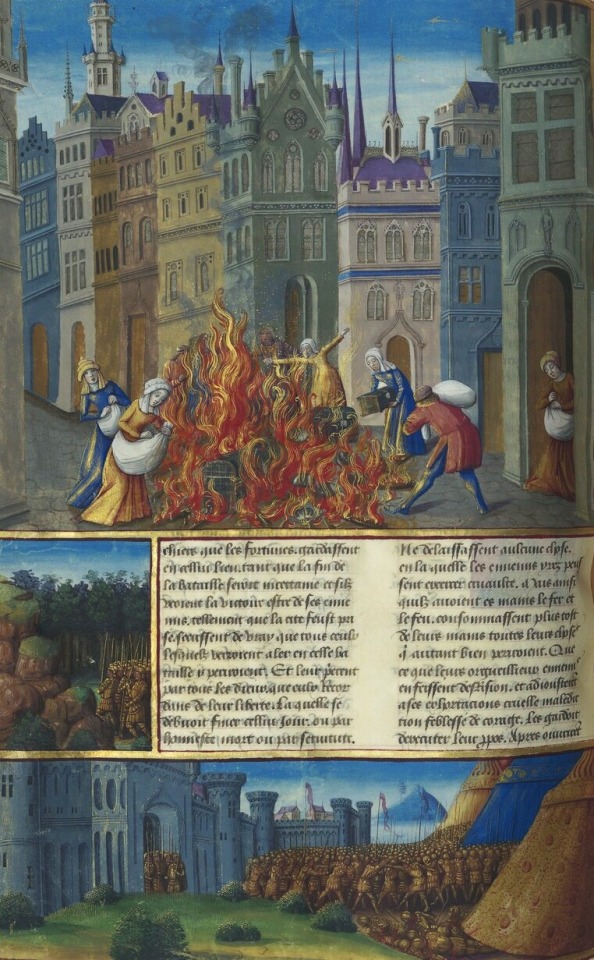 chiers que les fortunes gardassent
en cellui lieu, tant que la fin de
la bataille seroit incertaine et silz
veoient la victoire estre de ses enne
mis, tellement que la cite feust pri
se, feissent de vray que tous ceulx
lesquelz verroient aler en celle ba
taille y perroient. Et leur prierent
par tous les dieux que eulx Recor
dans de leur liberte. La quelle se
debuoit finer cellui Jour, ou par
honneste mort ou par seruitute,
Ne delaissassent aulcune chose,
en la quelle les ennemis yrez peus
sent exercer cruaulte, a vis ainsi
quilz auoient es mains le fer et
le feu, consummassent plus tost
de leurs mains toutes leurs choses
autant bien perroient, Que
ce que leurs orgueilleux ennemis
en feissent derision, et adioustoit
a ses exhortacions cruelle maledic
tion se feblesse de corraige, les gardoit
dexecuter leur ppos. Apres